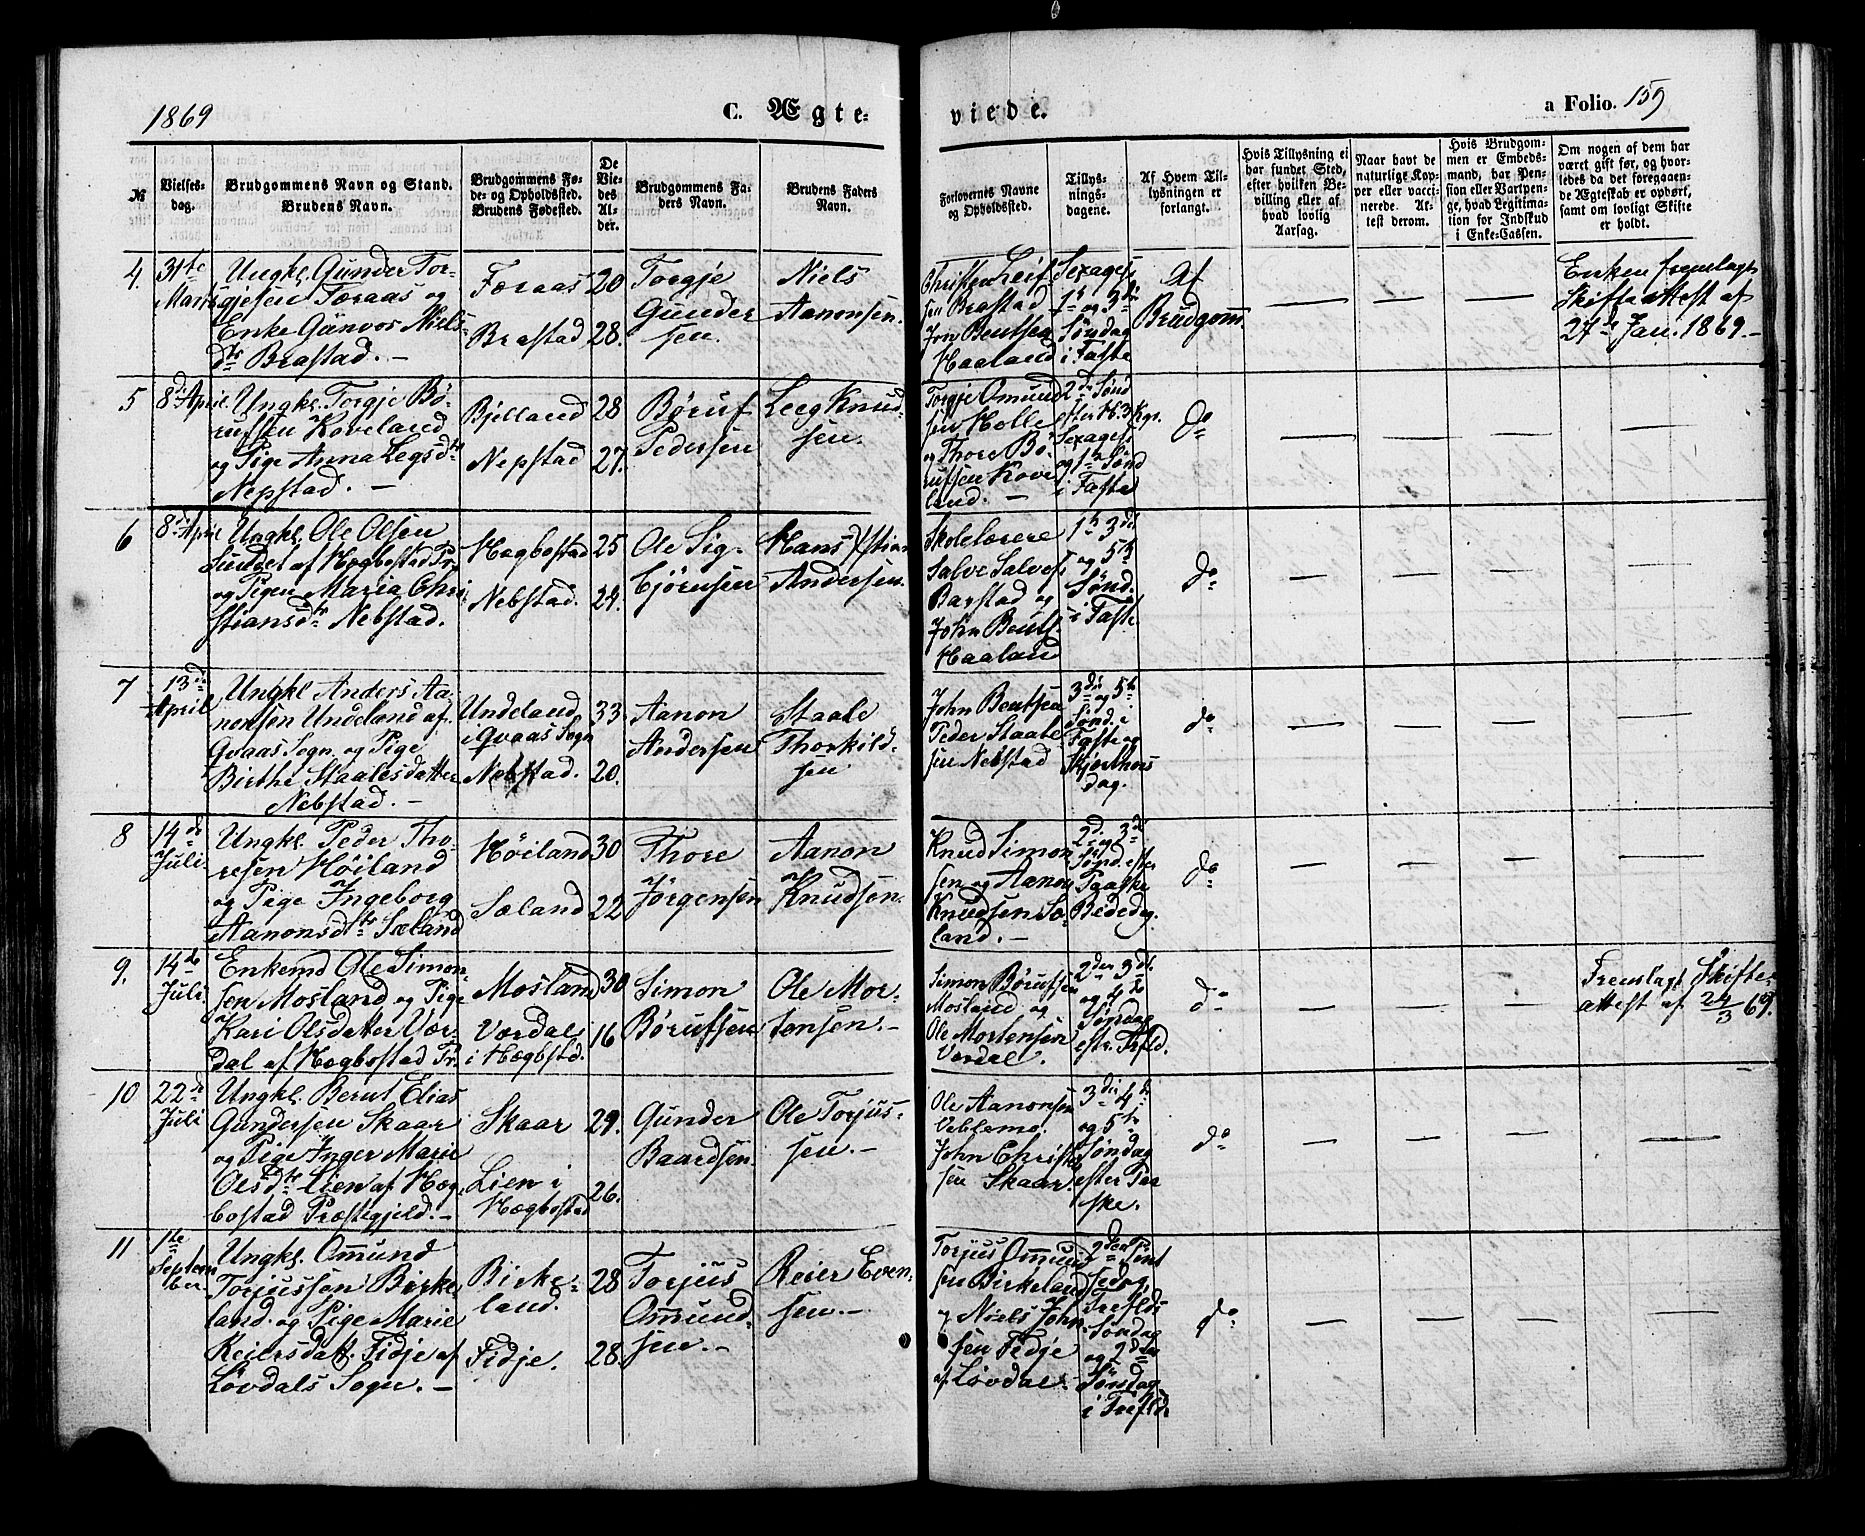 1869
C. Ægte-
viede.
a Folio. 159
№
Vielses-
dag.
Brudgommens Navn og Stand.
Brudens Navn.
Brudgommens Fø-
de- og Opholdssted.
Brudens Fødested.
De
Vie-
des
Al-
der.
Brudgommens Fa-
ders Navn.
Brudens Faders
Navn.
Forlovernes Navne
og Opholdssted.
Tillys-
nings-
dagene.
Af Hvem Til-
lysningen er
forlangt.
Hvis Tillysning ei
har fundet Sted,
efter hvilken Be-
villing eller af
hvad lovlig
Aarsag.
Naar havt de
naturlige Kop-
per eller vacci-
nerede. At-
test derom.
Hvis Brudgom-
men er Embeds-
mand, har Pen-
sion eller Vartpen-
ge, hvad Legitima-
tion for Indskud
i Enke-Cassen.
Om nogen af dem har
været gift før, og hvor-
ledes da det foregaaen-
de Ægteskab er ophørt,
samt om lovligt Skifte
er holdt.
4.
31te
Marts
Ungkl. Gunder Tor-
gjesen Færaas og
Enke Gunvor Niels-
dtr Brastad. —
Færaas
Brastad
20
28.
Torgje
Gunder
sen.
Niels
Aanonsen.
Christen Leif
sen Brastad
Jon Bentsen
Haaland
Sexages
1ste og 3die
Søndag
i Faste
Af
Brudgom.
—
—
—
Enken fremlagt
Skifteattest af
27de Jan. 1869. —
5
8de April.
Ungkl. Torgje Bø-
rufsen Koveland
og Pige Anna Legsdtr
Nepstad. —
Bjelland
Nepstad
28
27.
Børuf
Pedersen
Leeg Knud
sen.
Torgje Omund
sen Holle
og Thore Bø-
rufsen Kove
land. —
2de Sønd
efter H. 3 Kgr.
Sexages
og 1ste Sønd
i Faste
do
—
—
—
—
6
8de April
Ungkl. Ole Olsen
Sundet af Hægbostad Pr.
og Pigen Maria Chri
stiansdtr Nebstad.
Hægbostad
Nebstad.
25
29.
Ole Sig-
bjørnsen
Hans Xstian
Andersen.
Skolelærere
Salve Salves
Barstad og
John Bents.
Haaland
1ste 3die
og 5te
Sønd.
i Faste
do
—
—
—
—
7
13de
April
Ungkl Anders Aa-
nonsen Undeland af
Qvaas Sogn og Pige
Birthe Staalesdatter
Nebstad. —
Undeland
i Qvaas Sogn
Nebstad.
33
20.
Aanon
Andersen
Staale
Thorkild-
sen
John Bentsen
Peder Staale
sen Nebstad
3die og 5te
Sønd. i
Faste og
Skjærthors
dag.
do
—
—
—
—
8
14de
Juli
Ungkl. Peder Tho-
resen Høiland
og Pige Ingeborg
Aanonsdtr Sæland
Høiland
Sæland
30
22
Thore
Jørgensen
Aanon
Knudsen.
Knud Simon
sen og Aanon
Knudsen Sæ-
land. —
2de og 3die
Sønd. efter
Paaske
Bededag.
do
—
—
—
—
9.
14de
Juli
Enkemd Ole Simon-
sen Mosland og Pige
Kari Olsdatter Vær-
dal af Hægbostad Pr.
Mosland
Værdal
i Hægbstd.
30
16
Simon
Børufsen
Ole Mor-
tensen. —
Simon Børufsen
Mosland og
Ole Mortensen
Værdal.
2den 3die
og 4de
Søndag
eftr. Trfld.
do
—
—
—
Fremlagt Skifte
attest af 24/3 69.
10
22de
Juli
Ungkl. Berut Elias
Gundersen Skaar
og Pige Inger Marie
Olsdtr Lien af Hæg
bostad Præstegjeld. —
Skaar
Lien i
Hægbostad
29.
26.
Gunder
Baardsen.
Ole Torjus-
sen. —
Ole Aanonsen
Veblemo.
John Christ
sen Skaar
3die 4de
og 5te
Søndag
efter Paa
ske.
do
—
—
—
—
11
1ste
Septem
ber
Ungkl. Omund
Torjussen Birke
land. og Pige Marie
Reiersdatt. Fidje af
Løvdals Sogn. —
Birke-
land.
Fidje.
28
28.
Torjus
Omund-
sen. —
Reier Even-
sen. —
Torjus Omund-
sen Birkeland
og Niels John
sen Fedje
af Løvdal.
2den Pint
sedag,
Trefld
Søndag
og 2den
Søndag
i Trefld
do
—
—
—
—